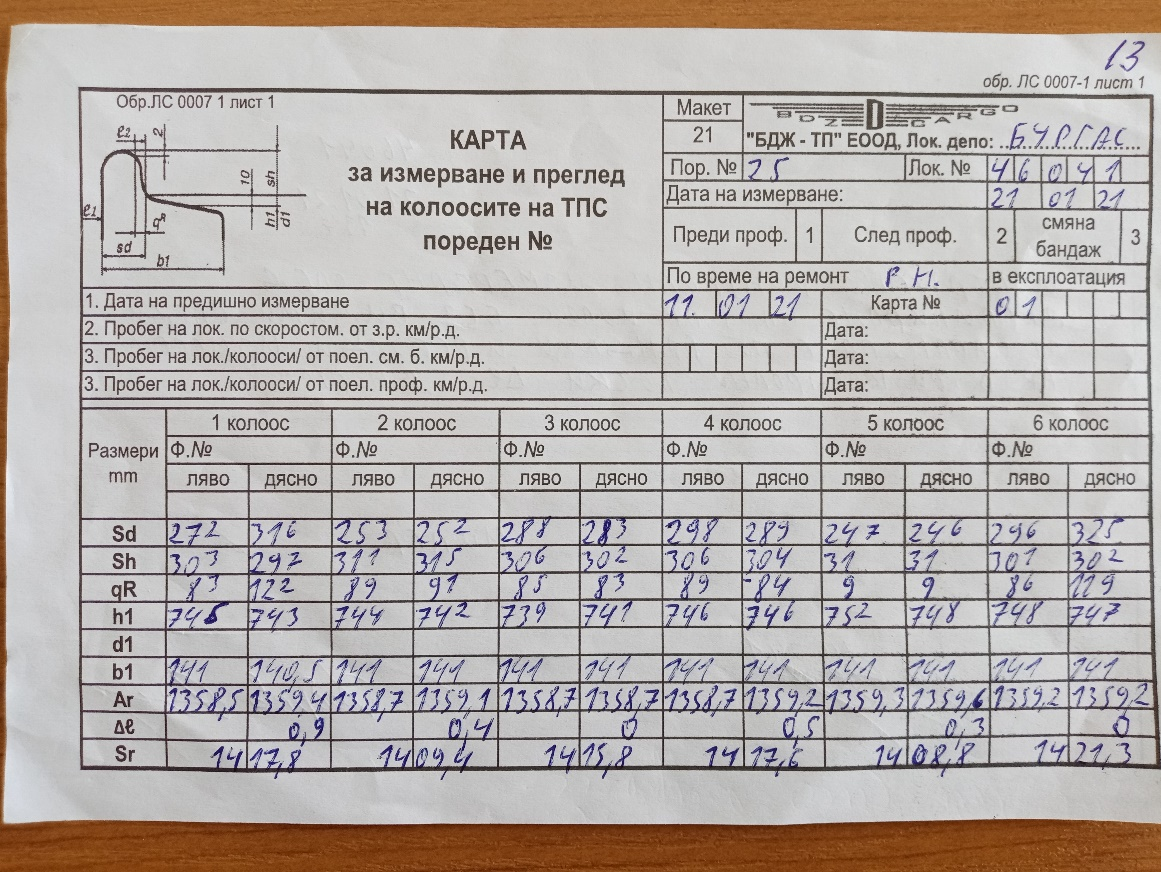 13
обр. ЛС 0007-1 лист 1
Обр.ЛС 0007 1 лист 1
ℓ2 2
10 sh
ℓ1 qR h1 d1
sd
b1
КАРТА
за измерване и преглед
на колоосите на ТПС
пореден №
Макет
21
BDZ CARGO
"БДЖ - ТП" ЕООД, Лок. депо: БУРГАС
Пор. № 25 Лок. № 46 041
Дата на измерване: 21 01 21
Преди проф. 1 След проф. 2 смяна бандаж 3
По време на ремонт Р.Н. в експлоатация
1. Дата на предишно измерване 11. 01 21 Карта № 01
2. Пробег на лок. по скоростом. от з.р. км/р.д. Дата:
3. Пробег на лок./колооси/ от поел. см. б. км/р.д. Дата:
3. Пробег на лок./колооси/ от поел. проф. км/р.д. Дата:
Размери mm 1 колоос 2 колоос 3 колоос 4 колоос 5 колоос 6 колоос
Ф.№ Ф.№ Ф.№ Ф.№ Ф.№ Ф.№
ляво дясно ляво дясно ляво дясно ляво дясно ляво дясно ляво дясно
Sd 272 316 253 252 288 283 298 289 247 246 296 325
Sh 303 297 311 315 306 302 306 304 31 31 301 302
qR 83 122 89 91 85 83 89 84 9 9 86 119
h1 745 743 744 742 739 741 746 746 752 748 748 747
d1
b1 141 140,5 141 141 141 141 141 141 141 141 141 141
Ar 1358,5 1359,4 1358,7 1359,1 1358,7 1358,7 1358,7 1359,2 1359,3 1359,6 1359,2 1359,2
Δℓ 0,9 0,4 0 0,5 0,3 0
Sr 1417,8 1409,4 1415,8 1417,6 1408,8 1421,3